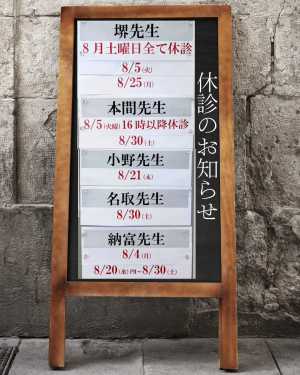 休診のお知らせ
堺先生
8月土曜日全て休診
8/5(火)
8/25(月)
本間先生
8/5(火曜)16時以降休診
8/30(土)
小野先生
8/21(木)
名取先生
8/30(土)
納富先生
8/4(月)
8/20(水)~8/30(土)